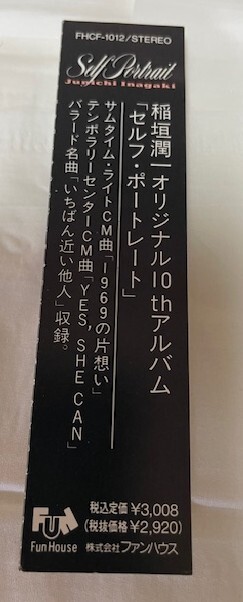 FHCF-1012/STEREO
Self Portrait
Junichi Inagaki
稲垣潤一オリジナル10thアルバム
「セルフ・ポートレート」
サムタイム・ライトCM曲「1969の片想い」
テンポラリーセンターCM曲「YES, SHE CAN」
バラード名曲「いちばん近い他人」収録。
税込定価 ¥3,008
(税抜価格 ¥2,920)
FUN
Fun House 株式会社ファンハウス